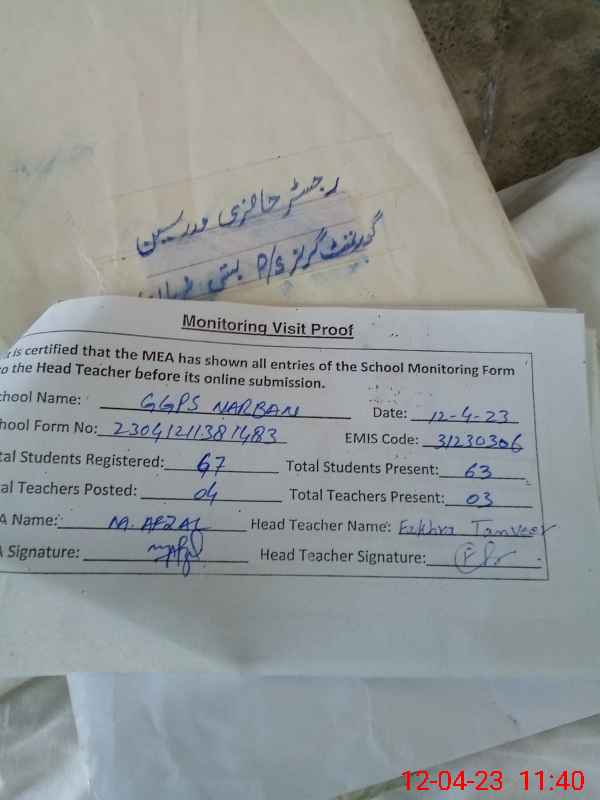 رجسٹر حاضری مدرسین
گورنمنٹ گرلز P/S بستی
Monitoring Visit Proof
is certified that the MEA has shown all entries of the School Monitoring Form
o the Head Teacher before its online submission.
chool Name: GGPS NARBAN Date: 12-4-23
hool Form No: 23041211381483 EMIS Code: 31230306
tal Students Registered: 67 Total Students Present: 63
al Teachers Posted: 04 Total Teachers Present: 03
A Name: M. AFZAL Head Teacher Name: Fakhra Tanveer
A Signature: Head Teacher Signature:
12-04-23 11:40